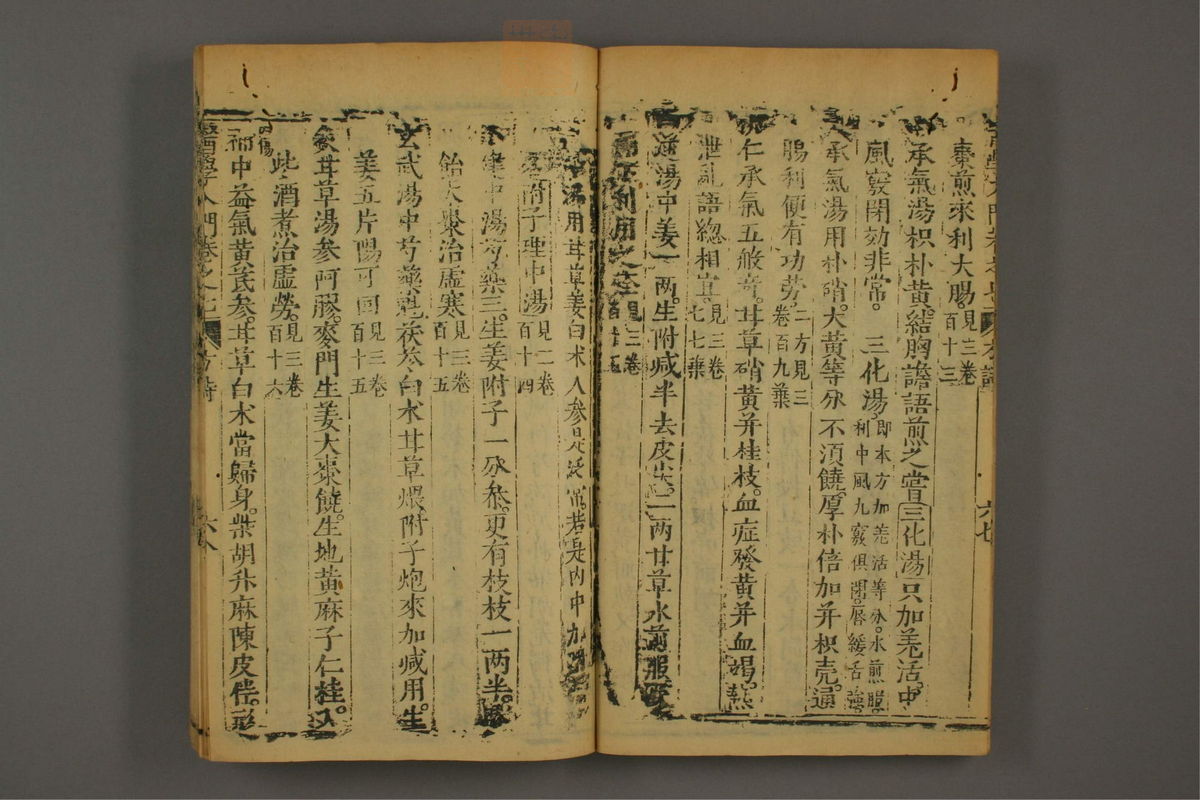 棗煎來利大腸見三卷百十三
承氣湯枳朴黃結胸譫語煎之嘗三化湯只加羌活中
風竅閉効非常。三化湯即本方加羌活等分。水煎服利中風九竅俱閉。唇緩舌強。
承氣湯用朴硝。大黃等分不須饒。厚朴倍加并枳壳。通
腸利便有功勞。二方見三卷百九葉
仁承氣五般奇。甘草硝黃并桂枝。血症發黃并血竭。熱
泄亂語緫相宜。見三卷七七葉
逆湯中姜一两。生附减半去皮尖。二两甘草水煎服
利用之 見三卷百十五
湯用甘草姜白术人參是 若是内中加附
附子理中湯見二卷百十四
建中湯芍藥三。生姜附子一分叅。更有枝枝一两半。膠
飴大棗治虛寒見三卷百十五
玄武湯中芍藥兼茯苓白术甘草煨附子炮來加减用。生
姜五片陽可回見三卷百十五
炙甘草湯參阿膠。麥門生姜大棗饒。生地黃麻子仁桂。又
些酒煮治虛勞。見三卷百十六
補中益氣黃芪參。甘草白术當歸身。柴胡升麻陳皮佐。
醫學入門卷之七 方詩 六八
六七